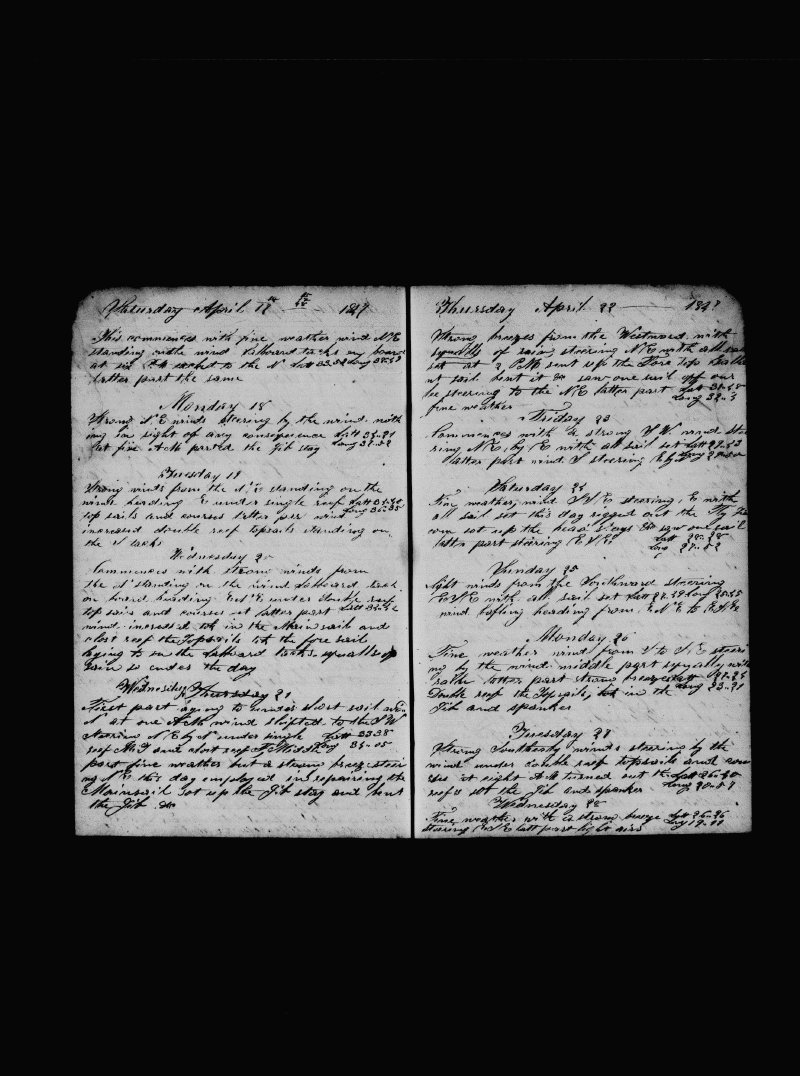 Saturday April 17th 1847
This commences with fine weather wind N E
standing with wind larboard tacks on board
at six P M tacked to the N Latt 33.52 Long 38-53
latter part the same
Monday 18
Strong N E winds steering by the wind noth
ing in sight of any consequence Latt 34-21
at five A M parted the Jib stay Long 37-52
Tuesday 19
Strong winds from the N E standing on the
wind heading E under single reef
top sails and courses latter part wind
increased double reef topsails standing on
the S tack
Wednesday 20
Commences with strong winds from
the N standing on the wind larboard tack
on board heading under double reef
top sails and courses set latter part
wind increased took in the Main sail and
close reef the Topsails the fore sail
laying to on the larboard tacks squalls of
rain so ends the day
Wednesday Thursday 21
First part laying to under short sail
N at one A M wind shifted to the S W
N E by N under single Latt 33 38
reef close reef Long 34-05
part fine weather but a strong breeze steer
ing N E this day employed in repairing the
Mainsail Got up the Jib stay and bent
the Jib &c
Thursday April 22 1847
Strong breezes from the Westward with
squalls of rain steering N E with all sail
set at 2 P M sent up the Fore top
nt sail bent it &c saw one sail off our
lee steering to the N E latter part
fine weather Long 32-3
Friday 23
Commences with a strong S W wind stee
ring N E by E with all sail set Latt 29-53
latter part wind S steering E by N
Saturday 24
Fine weather wind S S E steering E with
all sail set this day rigged out the Fly Jib
oom set up the head Stays &c saw one sail
latter part steering E N E Latt 28-28
Long 27-52
Sunday 25
light winds from the Southward steering
E N E with all sail set Latt 27-59 Long 25-55
wind baffling heading from E N E to E S E
Monday 26
Fine weather wind from S to S E steeri
ng by the wind middle part squally with
rain latter part strong breezes Latt 27-24
Double reef the Topsails, took in the Long 23-21
Jib and spanker
Tuesday 27
Strong Southerly winds steering by the
wind under double reef topsails and cour
ses at eight A M turned out the Latt 26-40
reefs set the Jib and spanker Long 20-57
Wednesday 28
Fine weather with a strong breeze Latt 26-26
steering E S E latt part light airs Long 19-11